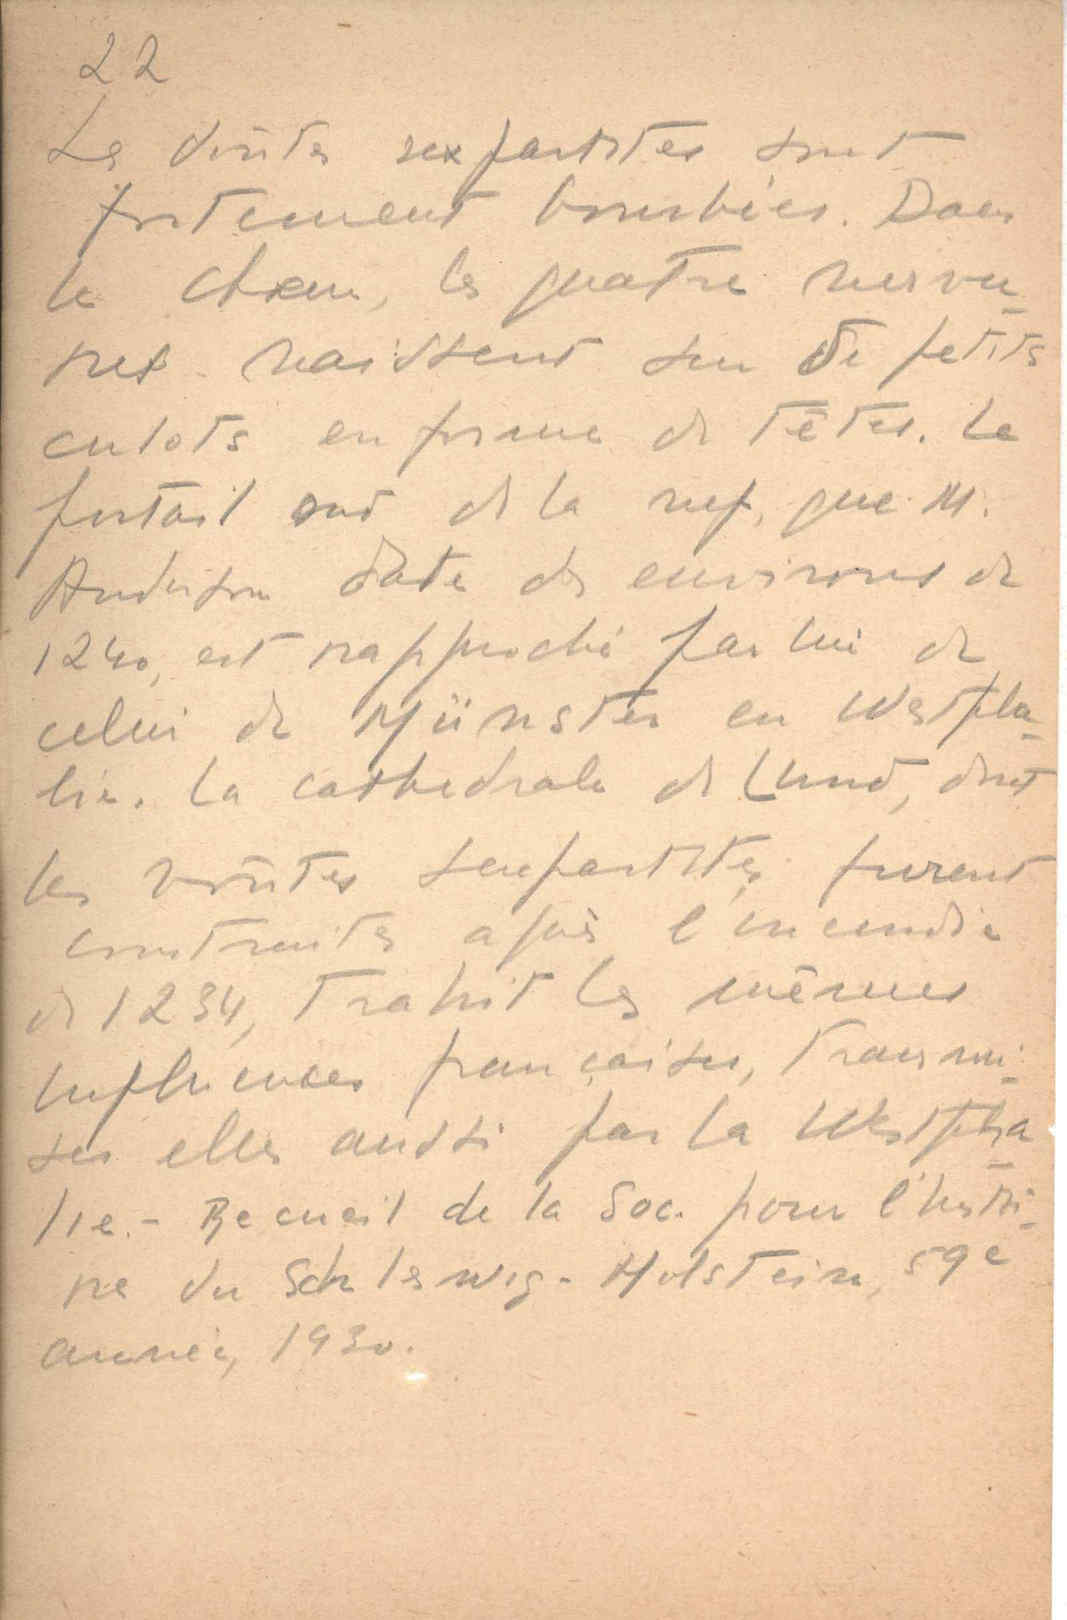 22
Les voûtes sexpartites sont
fortement bombées. Dans
le chœur, les quatre nervu-
res naissent sur de petits
culots en forme de têtes. Le
portail sud de la nef, que M.
Anderson date des environs de
1240, est rapproché par lui de
celui de Münster en Westpha-
lie. La cathédrale de Lund, dont
les voûtes sexpartites furent
construites après l'incendie
de 1234, trahit les mêmes
influences françaises, transmi-
ses elles aussi par la Westpha
lie. - Recueil de la Soc. pour l'histoi-
re du Schleswig-Holstein, 59e
année, 1930.